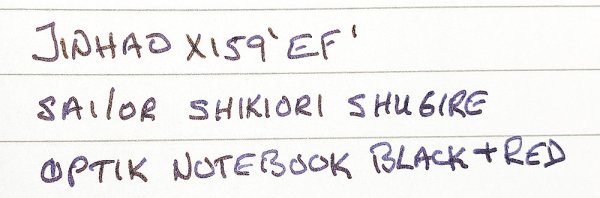 JINHAO X159 'EF'
SAILOR SHIKIORI SHUGIRE
OPTIK NOTEBOOK BLACK + RED